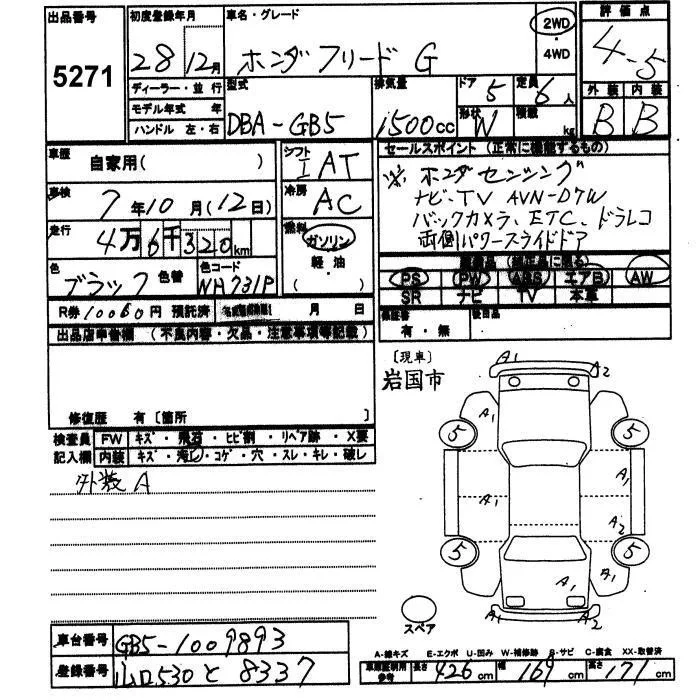 出品番号
5271
初度登録年月
28 12月
車名・グレード
ホンダ フリード G
2WD
・
4WD
評価点
4.5
外装 内装
B B
ディーラー・並行
モデル年式 年
ハンドル 左・右
型式
DBA-GB5
排気量
1500cc
ドア
5
形状
W
定員
6人
積載
kg
車歴
自家用( )
車検
7年10月(12日)
走行
4万6千320km
色
ブラック
色替
色コード
NH731P
シフト
IAT
冷房
AC
燃料
ガソリン
軽・油
( )
セールスポイント (正常に機能するもの)
※ ホンダセンシング
ナビ、TV AVN-D7W
バックカメラ、ETC、ドラレコ
両側パワースライドドア
装備品 (純正品に限る)
PS PW ABS エアB AW
SR ナビ TV 本革
R券 10060円 預託済
月 日
保証書
有・無
後日品
出品店申告欄 (不良内容・欠品・注意事項等記載)
修復歴 有〔箇所 〕
検査員
記入欄
FW キズ・飛石・ヒビ割・リペア跡・X要
内装 キズ・汚レ・コゲ・穴・スレ・キレ・破レ
外装 A
〔現車〕
岩国市
A1 A2
A1
5 5
A1 A1
A2
5 5
A1 A1
A1 A2
スペア
車台番号
GB5-1009893
登録番号
山口530 と 8337
A-線キズ E-エクボ U-凹み W-補修跡 S-サビ C-腐食 XX-取替済
車庫証明用
参考
長さ 426cm 幅 169cm 高さ 171cm